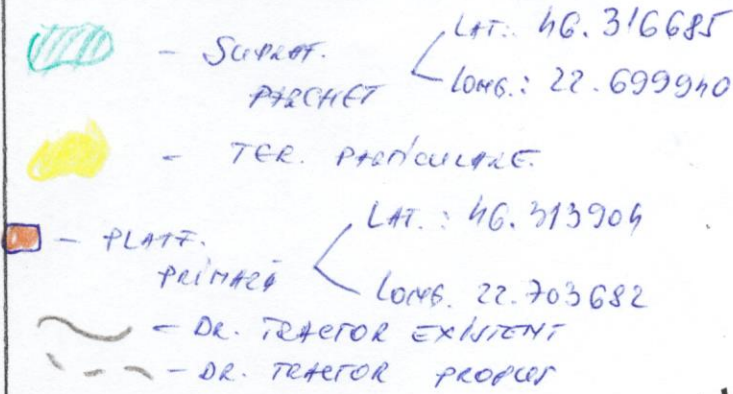 - SUPRAF. PARCHET
LAT.: 46.316685
LONG.: 22.699940
- TER. PARTICULARE.
- PLATF. PRIMARĂ
LAT.: 46.313904
LONG. 22.703682
- DR. TRACTOR EXISTENT
- DR. TRACTOR PROPUS